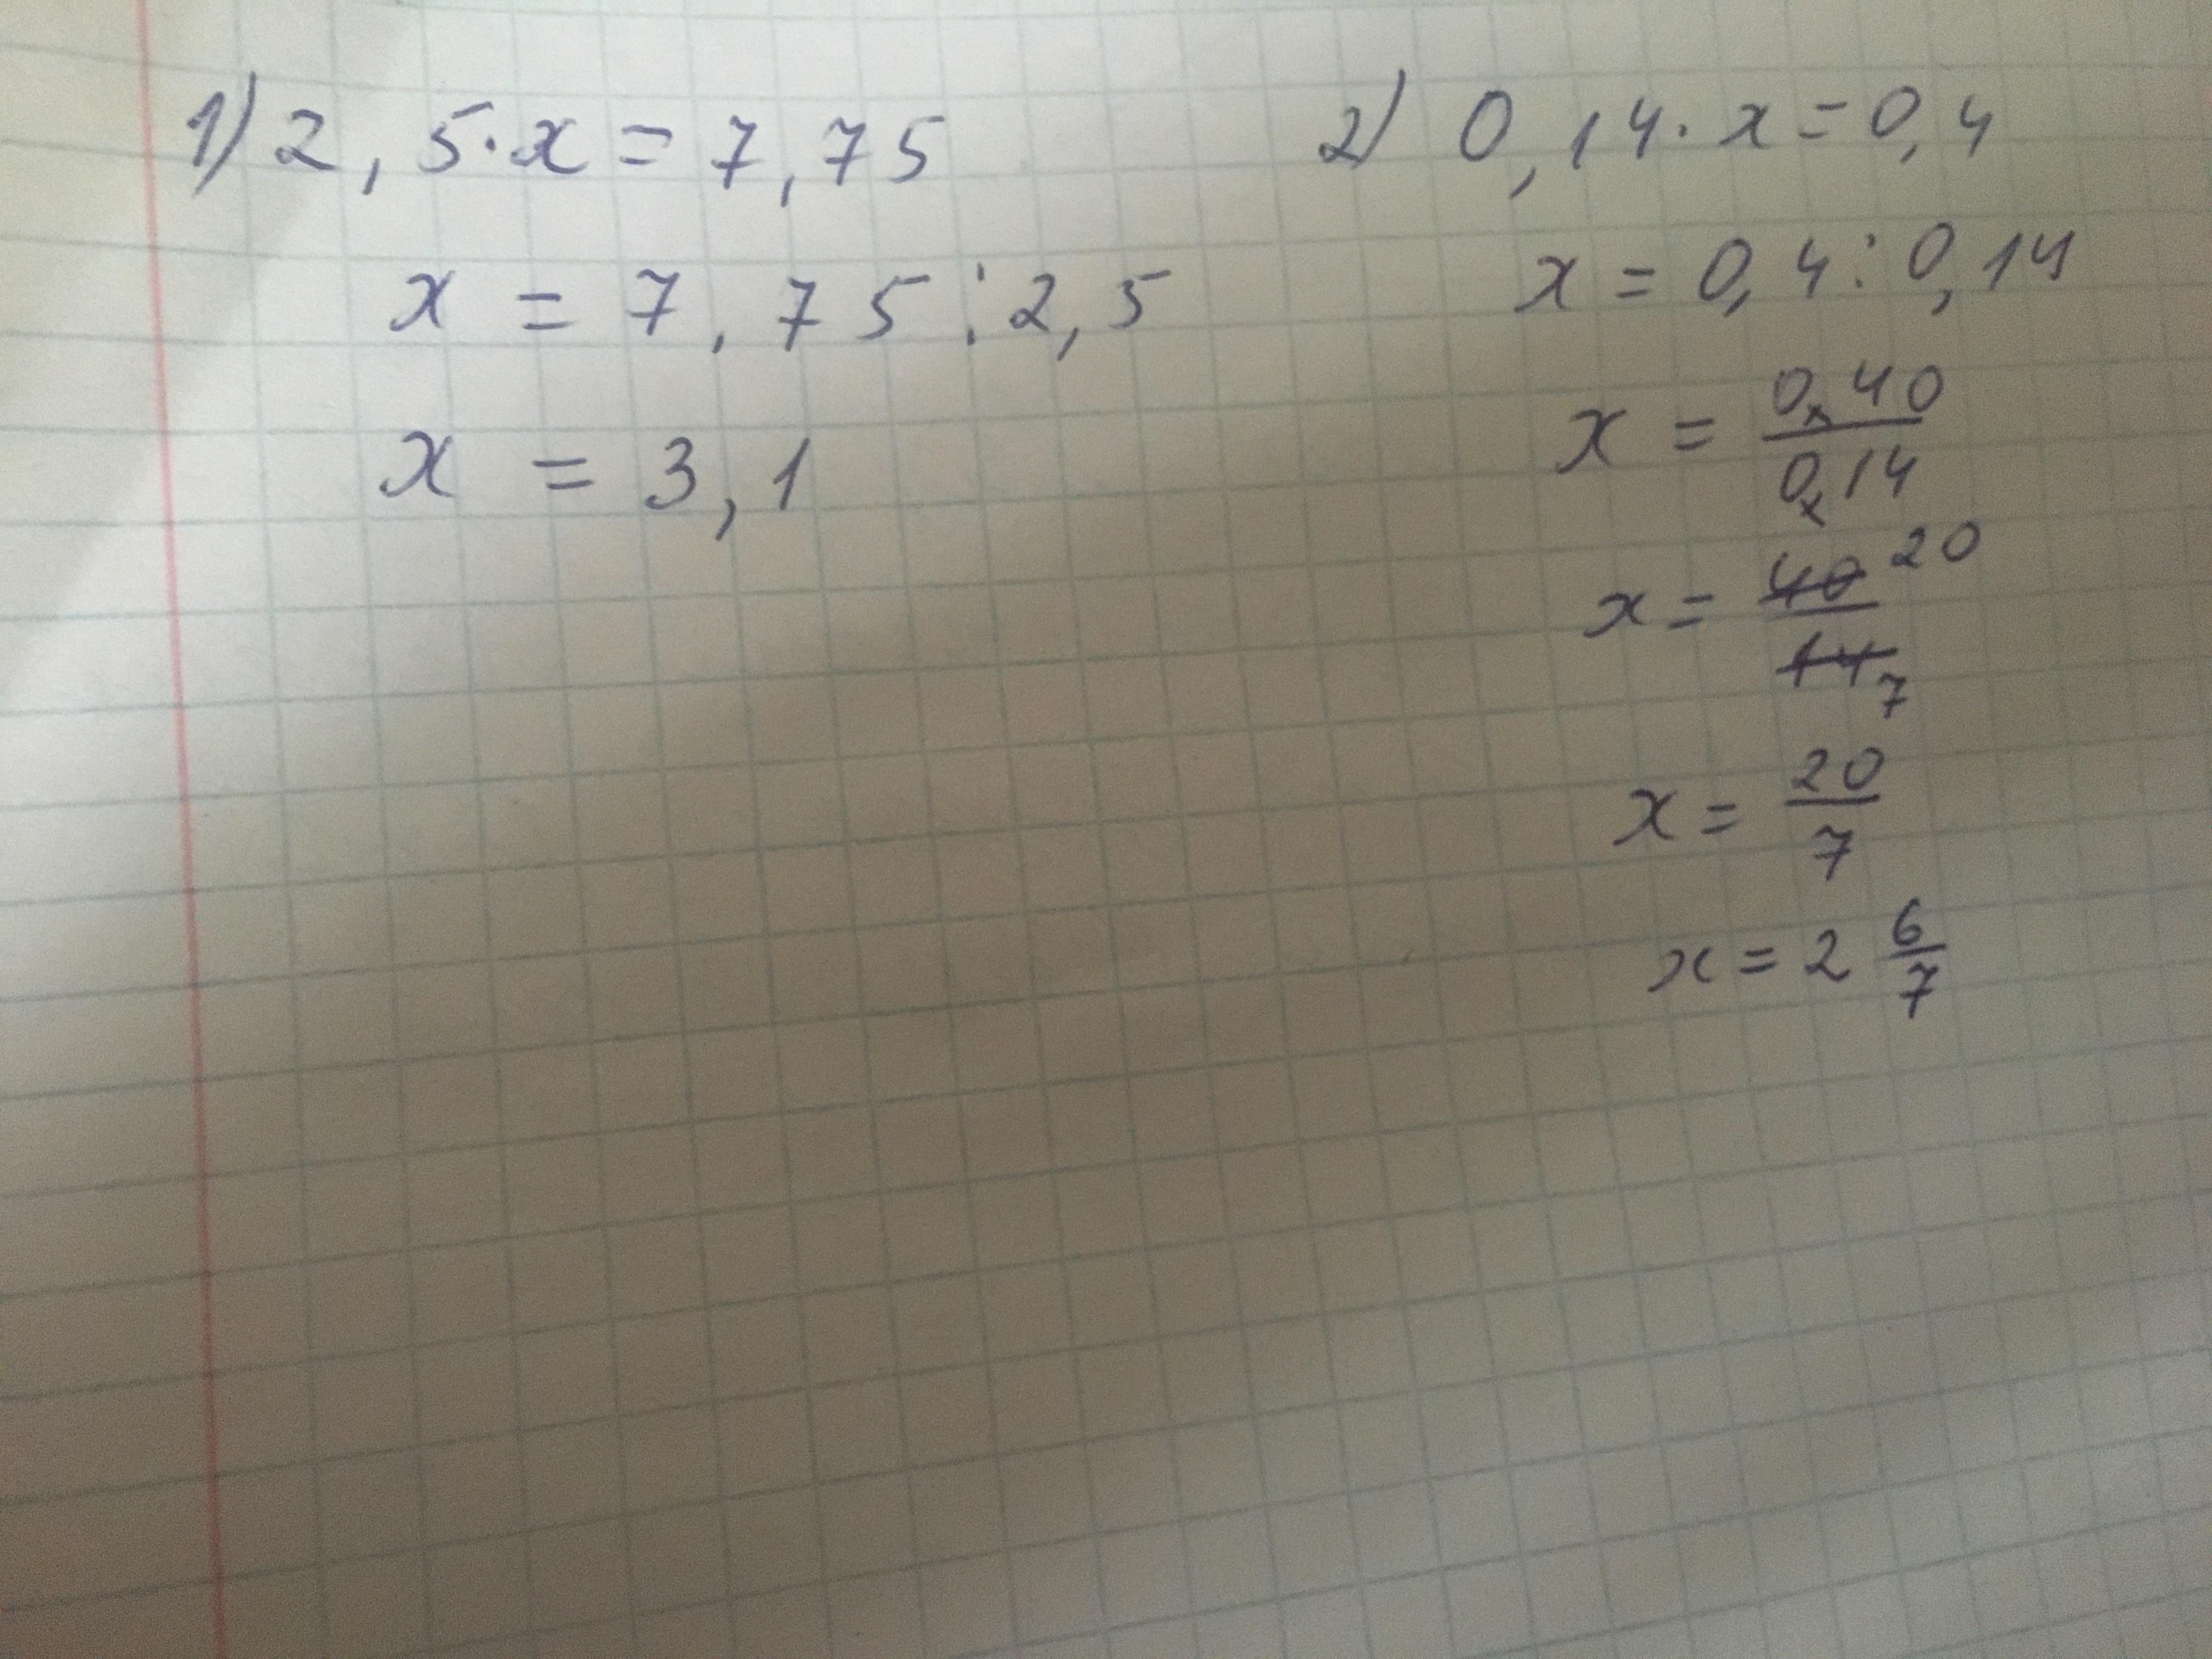 1) 2,5·x=7,75
x = 7,75:2,5
x = 3,1
2) 0,14·x=0,4
x=0,4:0,14
x = 0,40/0,14
x= 40/14 20 7
x= 20/7
x=2 6/7